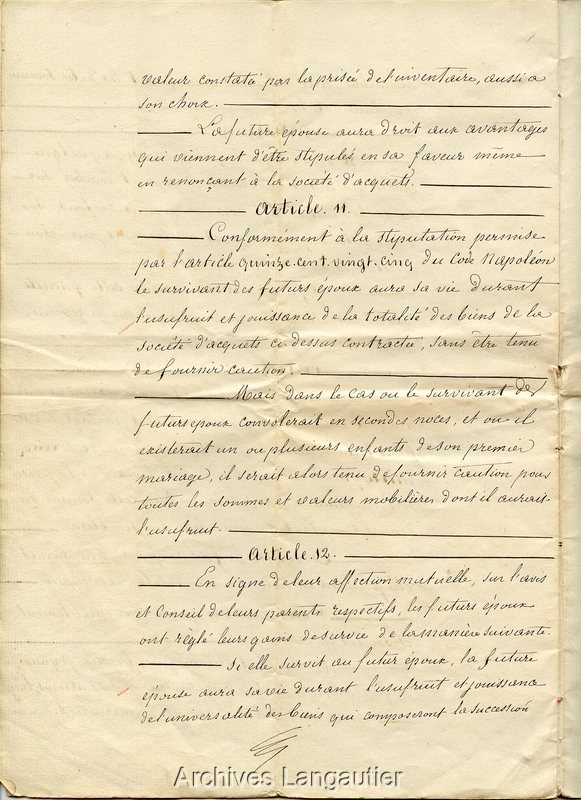 valeur constatée par la prisée de l'inventaire, aussi a
son choix.
La future épouse aura droit aux avantages
qui viennent d'être stipulés en sa faveur même
en renonçant à la société d'acquets.
Article. 11.
Conformément à la stiputation permise
par l'article quinze.cent.vingt.cinq du Code Napoléon
le survivant des futurs époux aura sa vie durant
l'usufruit et jouissance de la totalité des biens de la
société d'acquets ci-dessus contractée, sans être tenu
de fournir caution.
Mais dans le cas ou le survivant des
futurs epoux convolerait en secondes noces, et ou il
existerait un ou plusieurs enfants de son premier
mariage, il serait alors tenu de fournir caution pour
toutes les sommes et valeurs mobilières dont il aurait
l'usufruit.
Article. 12.
En signe de leur affection mutuelle, sur l'avis
et Conseil de leurs parents respectifs, les futurs époux
ont règlé leurs gains de survie de la manière suivante.
Si elle survit au futur époux, la future
épouse aura sa vie durant l'usufruit et jouissance
de l'universalité des biens qui composeront la succession
Archives Langautier